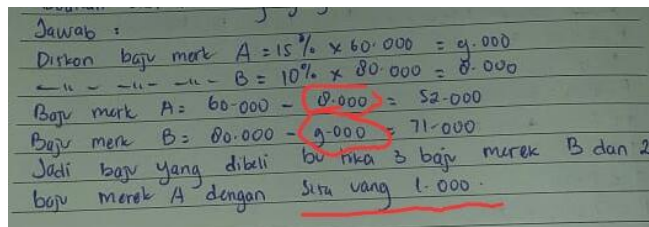 Jawab :
Diskon baju merk A = 15% x 60.000 = 9.000
-"- -"- -"- -"- B = 10% x 80.000 = 8.000
Baju merk A = 60.000 - 8.000 = 52.000
Baju merk B = 80.000 - 9.000 = 71.000
Jadi baju yang dibeli bu rika 3 baju merek B dan 2
baju merek A dengan sisa uang 1.000.